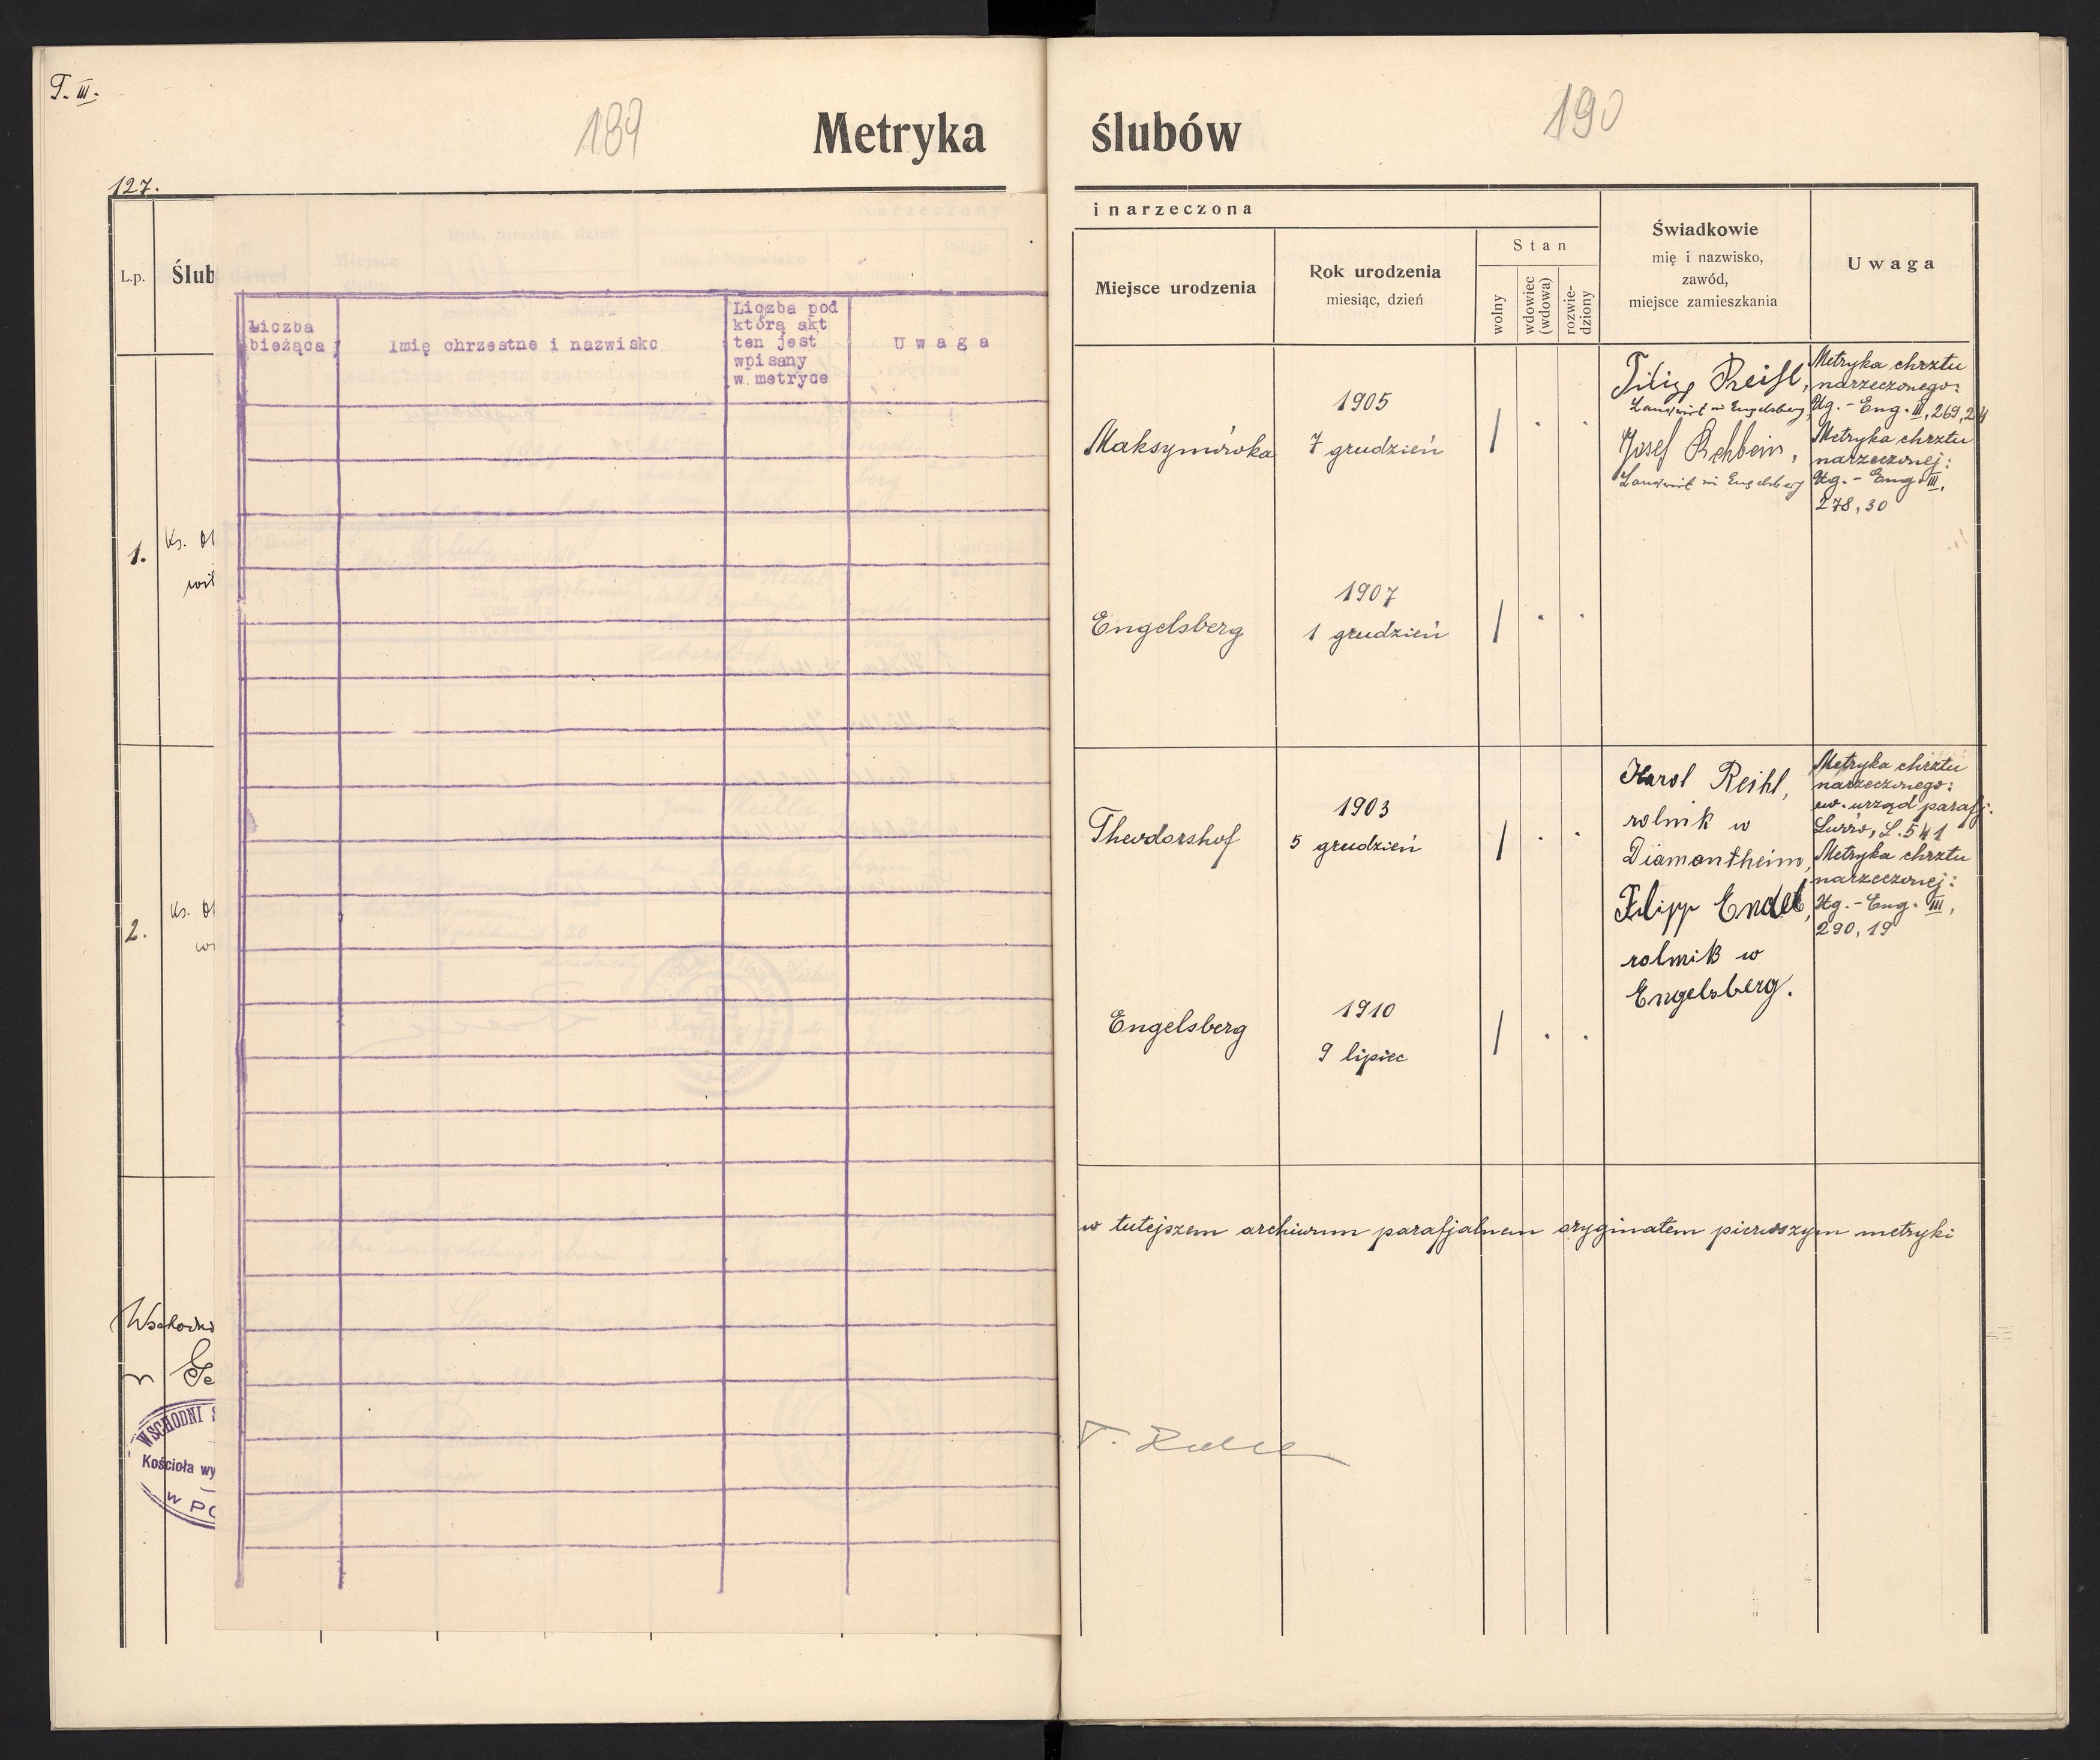 T. III.
189
Metryka
127.
L.p.
Ślub
1.
Ks.
2.
Ks.
Wschodni
WSCHODNI
Kościoła wy
w PO
Liczba
bieżąca
Imię chrzestne i nazwisko
Liczba pod
którą akt
ten jest
wpisany
w metryce
U w a g a
190
ślubów
i narzeczona
Miejsce urodzenia
Rok urodzenia
miesiąc, dzień
Stan
wolny
wdowiec
(wdowa)
rozwie-
dziony
Świadkowie
mię i nazwisko,
zawód,
miejsce zamieszkania
Uwaga
Maksymówka
1905
7 grudzień
Filipp Reihl,
Landwirt in Engelsberg,
Josef Rehbein,
Landwirt in Engelsberg
Metryka chrztu
narzeczonego:
Ug.-Eng. III, 269, 24
Metryka chrztu
narzeczonej:
Ug.-Eng. III,
278, 30
Engelsberg
1907
1 grudzień
Theodorshof
1903
5 grudzień
Karol Reihl,
rolnik w
Diamantheim,
Filipp Endel,
rolnik w
Engelsberg.
Metryka chrztu
narzeczonego:
ew. urząd parafj.
Lwów, L. 541
Metryka chrztu
narzeczonej:
Ug.-Eng. III,
290, 19
Engelsberg
1910
9 lipiec
w tutejszem archiwum parafjalnem oryginałem pierwszym metryki